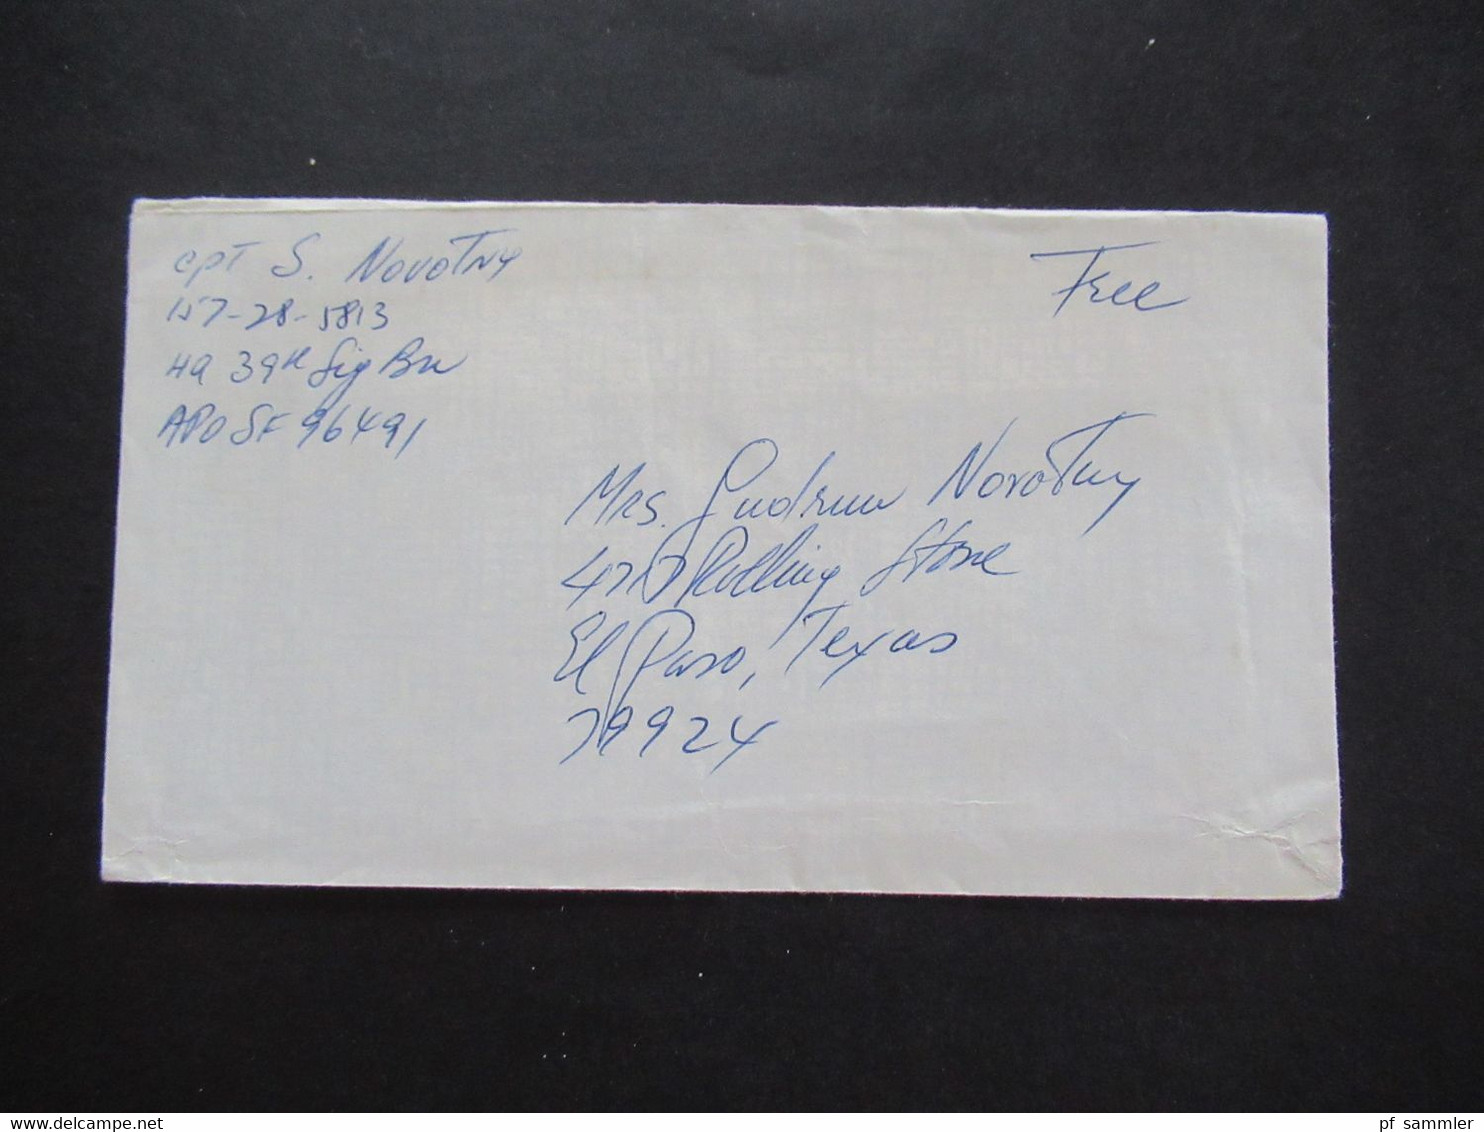 CPT S. Novotny
157-28-5813
HQ 39th Sig Bn
APO SF 96491
Free
Mrs. Gudrun Novotny
Rolling Stone
El Paso, Texas
79924
www.delcampe.net
pf_sammler